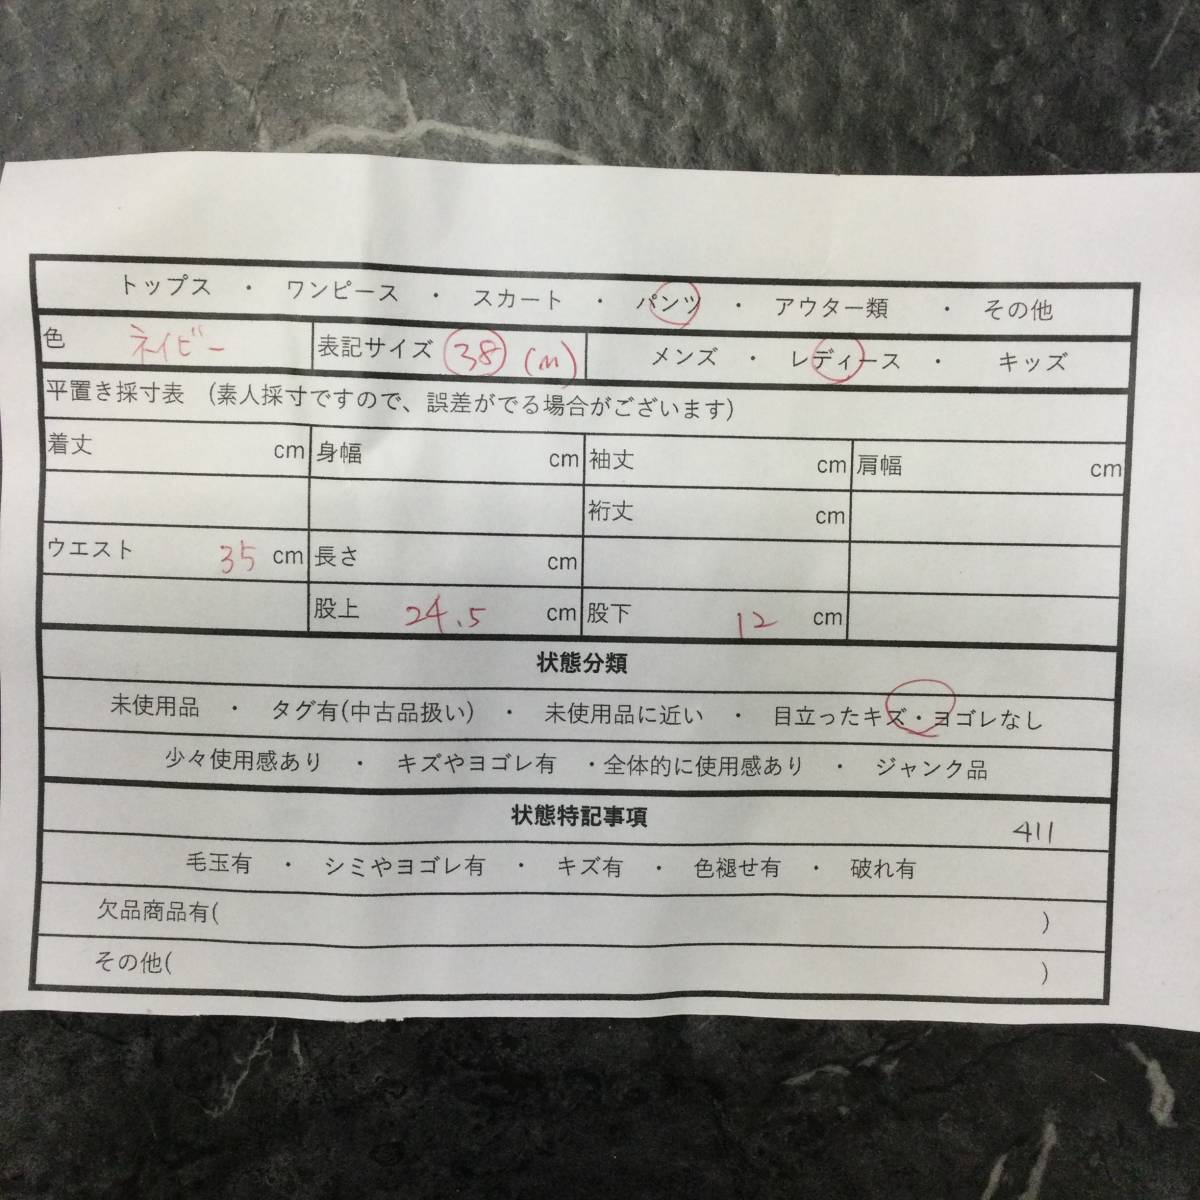 トップス ・ ワンピース ・ スカート ・ パンツ ・ アウター類 ・ その他
色 ネイビー 表記サイズ 38 (m) メンズ ・ レディース ・ キッズ
平置き採寸表 (素人採寸ですので、誤差がでる場合がございます)
着丈 cm 身幅 cm 袖丈 cm 肩幅 cm
裄丈 cm
ウエスト 35 cm 長さ cm
股上 24.5 cm 股下 12 cm
状態分類
未使用品 ・ タグ有(中古品扱い) ・ 未使用品に近い ・ 目立ったキズ・ヨゴレなし
少々使用感あり ・ キズやヨゴレ有 ・全体的に使用感あり ・ ジャンク品
状態特記事項 411
毛玉有 ・ シミやヨゴレ有 ・ キズ有 ・ 色褪せ有 ・ 破れ有
欠品商品有( )
その他( )